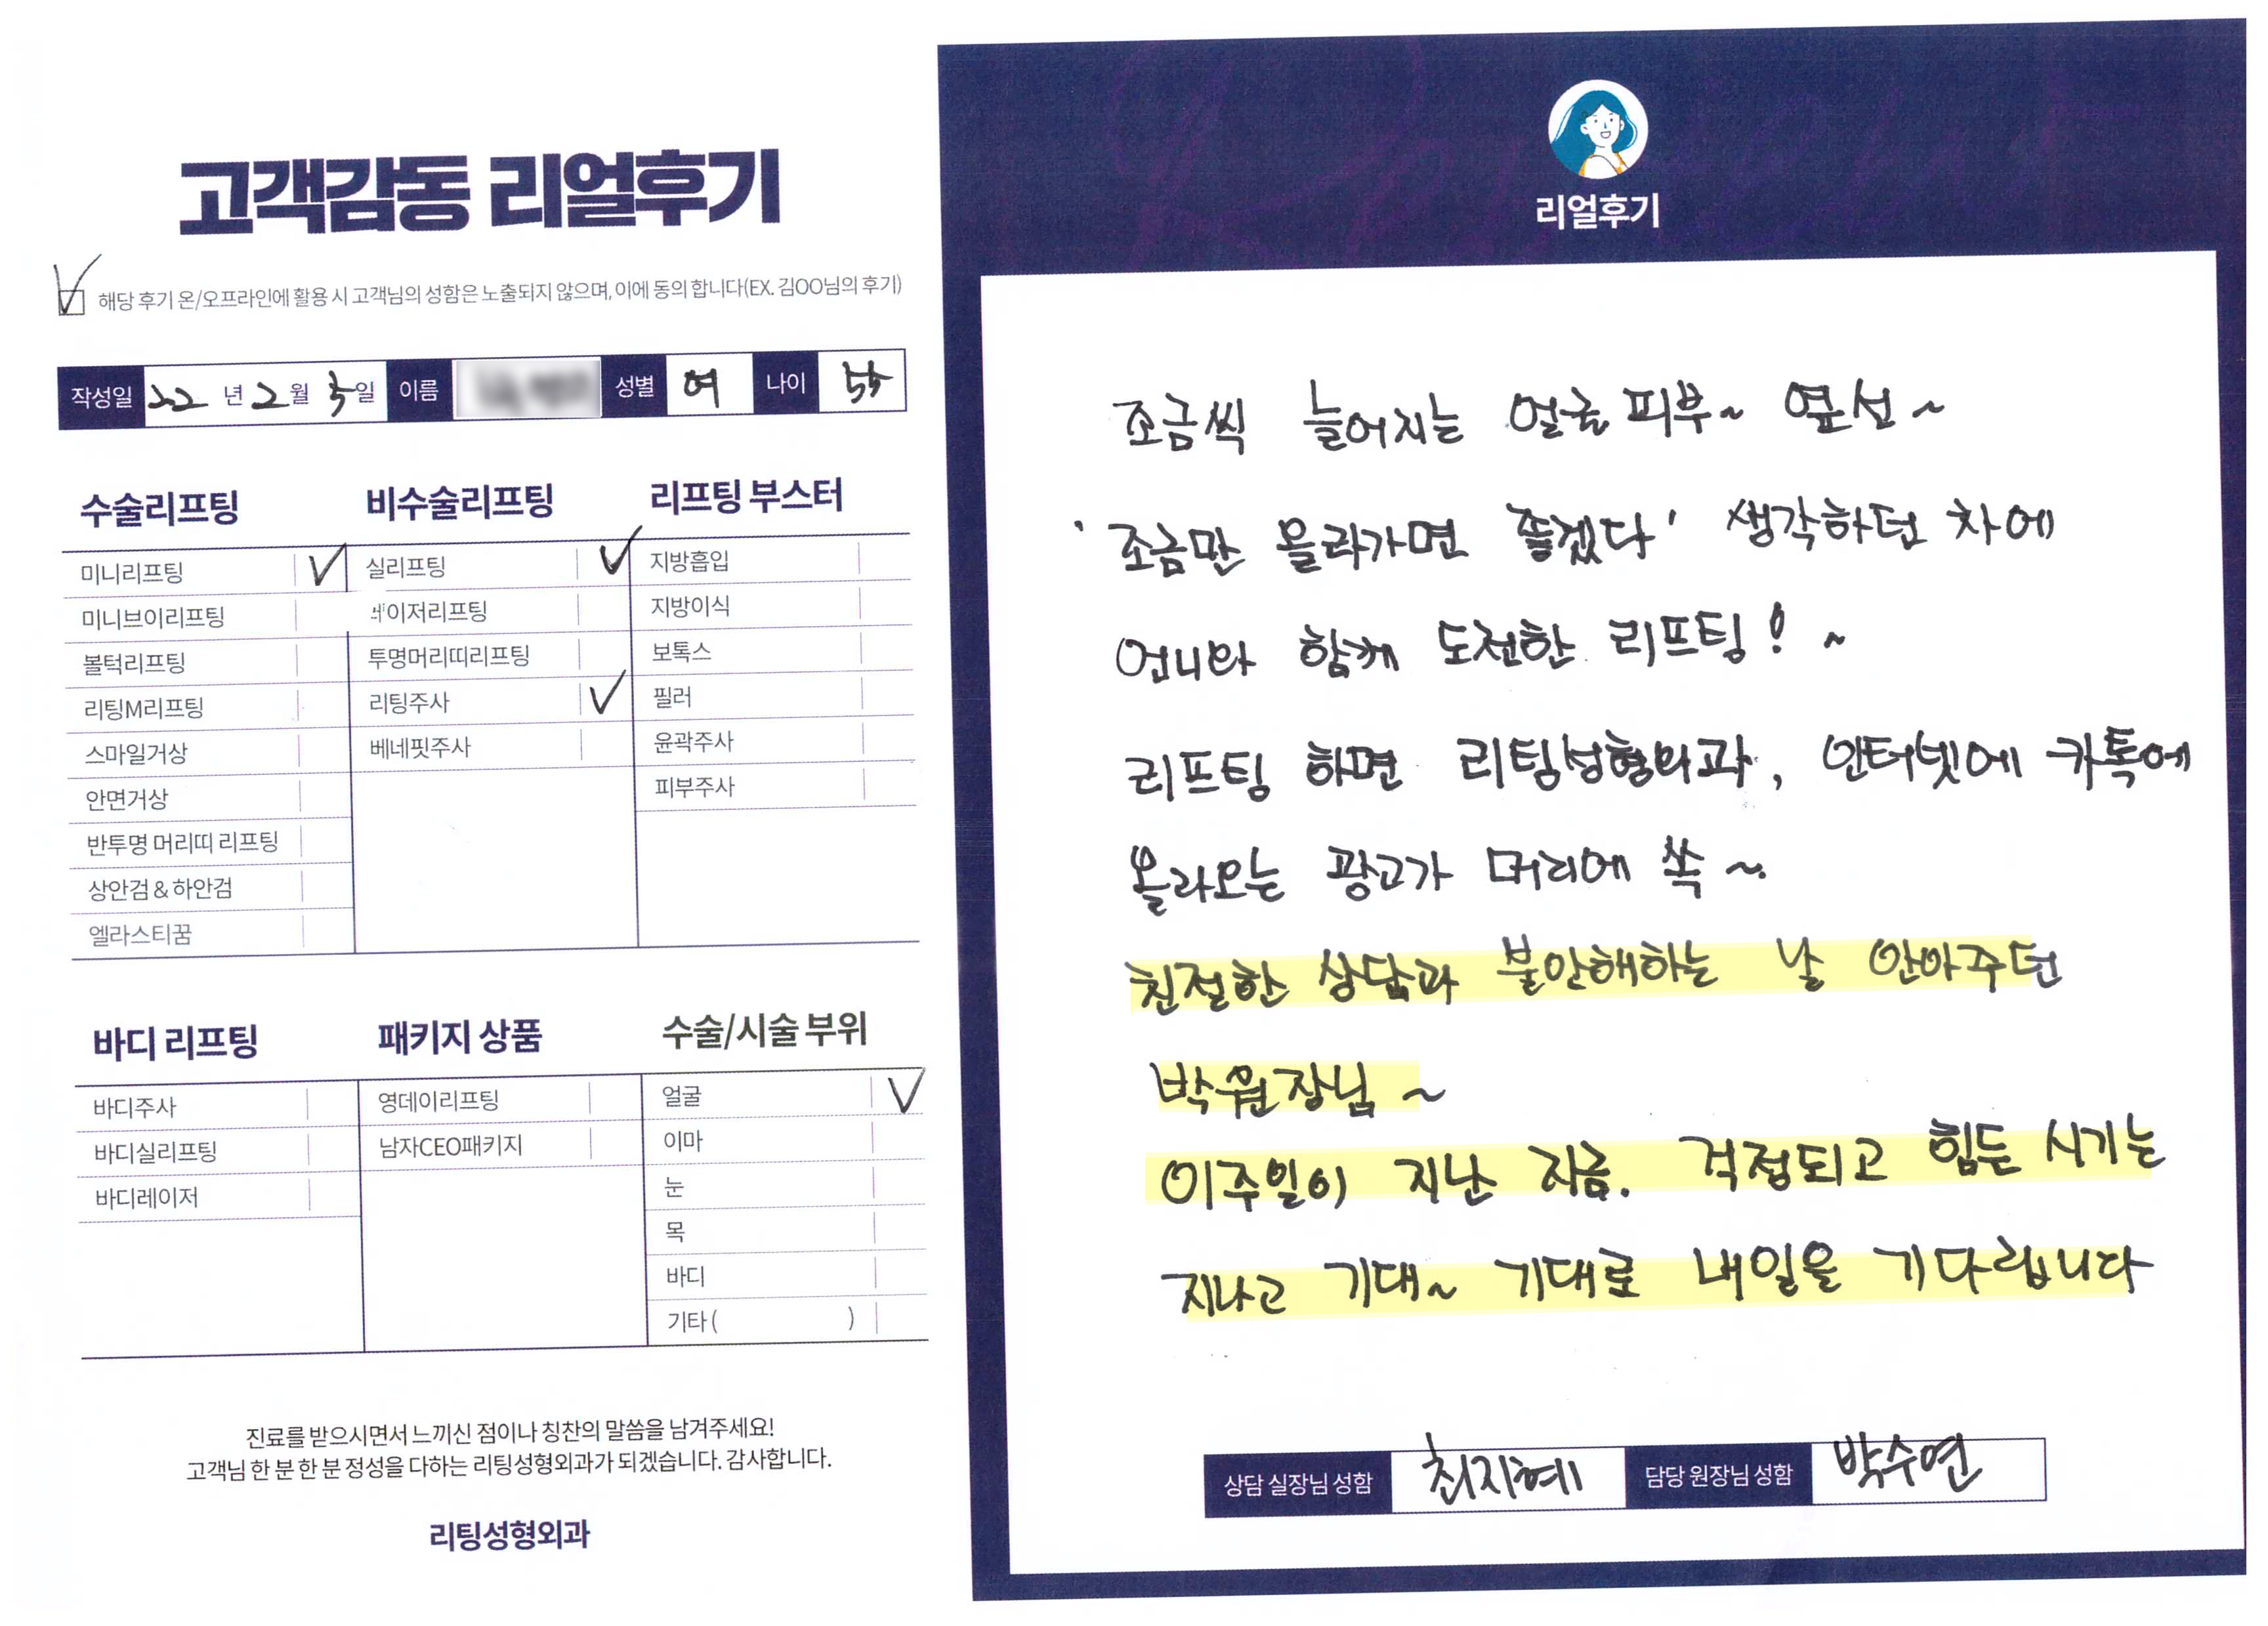 고객감동 리얼후기
해당 후기 온/오프라인에 활용 시 고객님의 성함은 노출되지 않으며, 이에 동의 합니다(EX. 김OO님의 후기)
작성일 22년 2월 5일 이름 성별 여 나이 55
수술리프팅
미니리프팅
미니브이리프팅
볼턱리프팅
리팅M리프팅
스마일거상
안면거상
반투명 머리띠 리프팅
상안검 & 하안검
엘라스티꿈
비수술리프팅
실리프팅
레이저리프팅
투명머리띠리프팅
리팅주사
베네핏주사
리프팅 부스터
지방흡입
지방이식
보톡스
필러
윤곽주사
피부주사
바디 리프팅
바디주사
바디실리프팅
바디레이저
패키지 상품
영데이리프팅
남자CEO패키지
수술/시술 부위
얼굴
이마
눈
목
바디
기타 ( )
진료를 받으시면서 느끼신 점이나 칭찬의 말씀을 남겨주세요!
고객님 한 분 한 분 정성을 다하는 리팅성형외과가 되겠습니다. 감사합니다.
리팅성형외과
리얼후기
조금씩 늘어지는 얼굴 피부~ 옆선~
'조금만 올라가면 좋겠다' 생각하던 차에
언니와 함께 도전한 리프팅! ~
리프팅 하면 리팅성형외과, 인터넷에 카톡에
올라오는 광고가 머리에 쏙~
친절한 상담과 불안해하는 날 안아주던
박원장님~
이주일이 지난 지금. 걱정되고 힘든 시기는
지나고 기대~ 기대로 내일을 기다립니다
상담 실장님 성함 최지혜 담당 원장님 성함 박수연